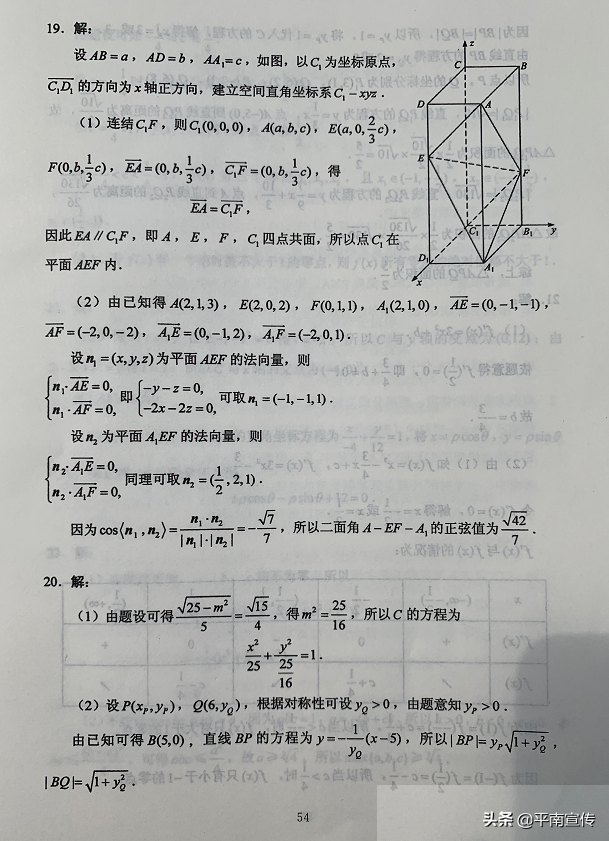 19. 解:
设 AB = a, AD = b, AA₁ = c, 如图, 以 C₁ 为坐标原点,
C₁D₁→ 的方向为 x 轴正方向, 建立空间直角坐标系 C₁ - xyz.
(1) 连结 C₁F, 则 C₁(0,0,0), A(a,b,c), E(a,0,2/3 c),
F(0,b,1/3 c), EA→ = (0,b,1/3 c), C₁F→ = (0,b,1/3 c), 得
EA→ = C₁F→,
因此 EA // C₁F, 即 A, E, F, C₁ 四点共面, 所以点 C₁ 在
平面 AEF 内.
z
C
B
D
A
E
F
C₁
B₁
y
D₁
A₁
x
(2) 由已知得 A(2,1,3), E(2,0,2), F(0,1,1), A₁(2,1,0), AE→ = (0,-1,-1),
AF→ = (-2,0,-2), A₁E→ = (0,-1,2), A₁F→ = (-2,0,1).
设 n₁ = (x,y,z) 为平面 AEF 的法向量, 则
{n₁·AE→ = 0, n₁·AF→ = 0, 即 {-y-z = 0, -2x-2z = 0, 可取 n₁ = (-1,-1,1).
设 n₂ 为平面 A₁EF 的法向量, 则
{n₂·A₁E→ = 0, n₂·A₁F→ = 0, 同理可取 n₂ = (1/2,2,1).
因为 cos⟨n₁,n₂⟩ = n₁·n₂/(|n₁|·|n₂|) = -√7/7, 所以二面角 A-EF-A₁ 的正弦值为 √42/7.
20. 解:
(1) 由题设可得 √(25-m²)/5 = √15/4, 得 m² = 25/16, 所以 C 的方程为
x²/25 + y²/(25/16) = 1.
(2) 设 P(x_P,y_P), Q(6,y_Q), 根据对称性可设 y_Q > 0, 由题意知 y_P > 0.
由已知可得 B(5,0), 直线 BP 的方程为 y = -1/y_Q (x-5), 所以 |BP| = y_P√(1+y_Q²),
|BQ| = √(1+y_Q²).
54
头条 @平南宣传